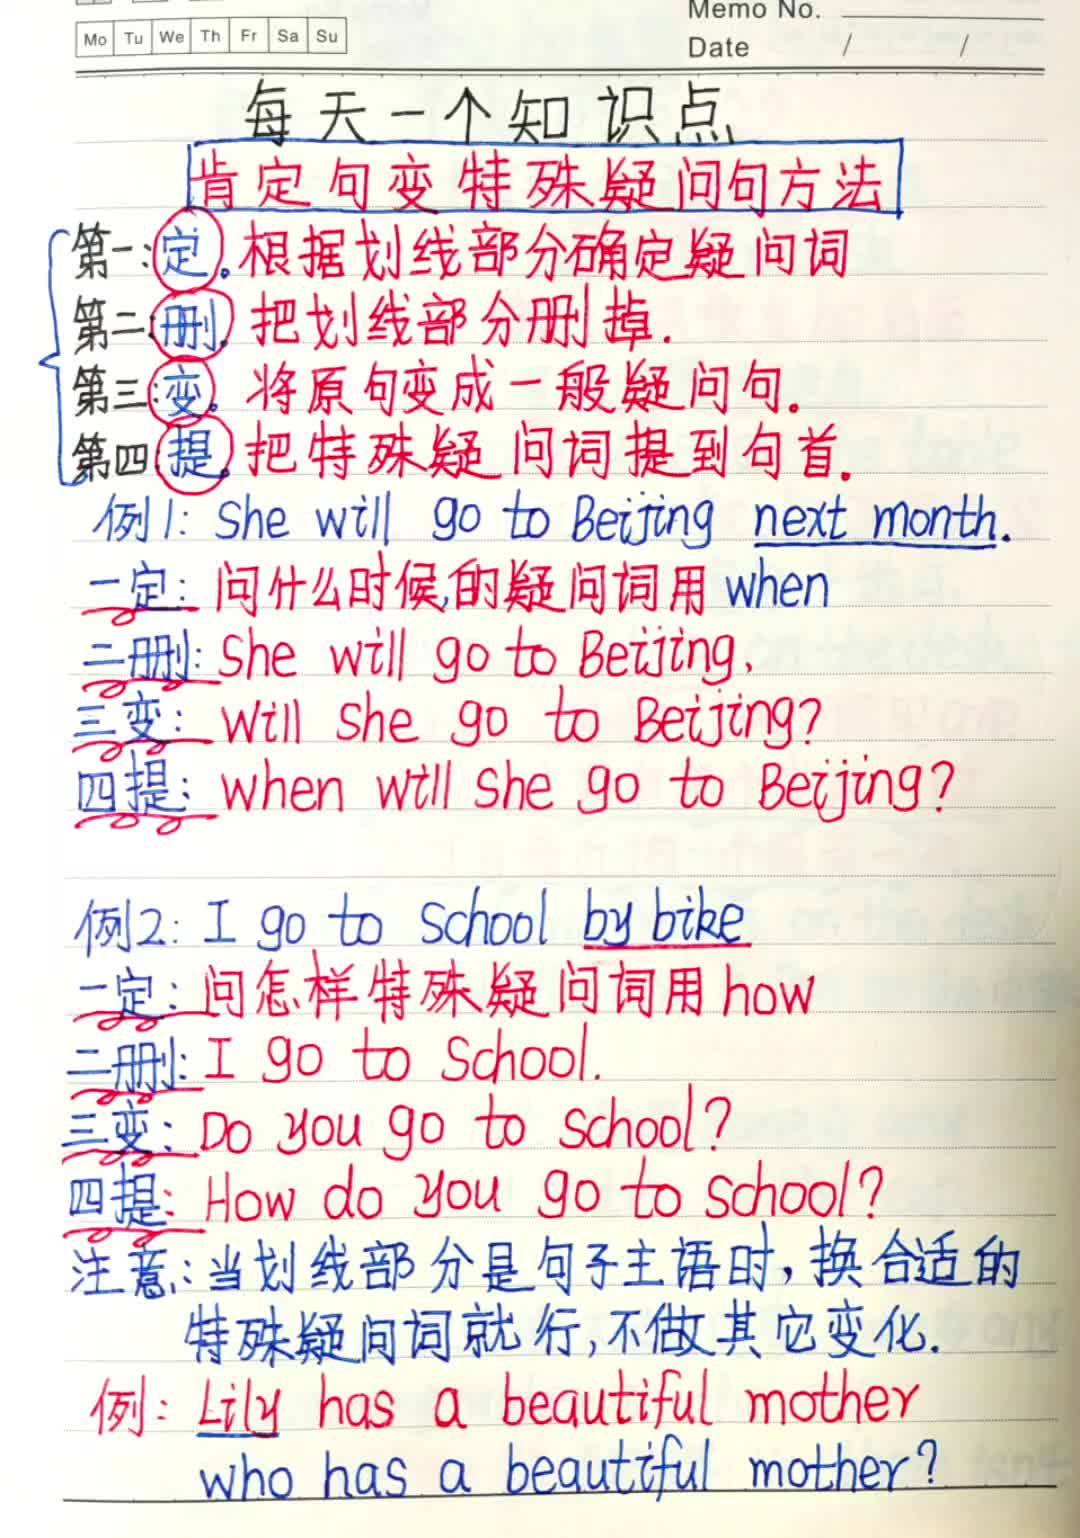 Memo No.
Mo Tu We Th Fr Sa Su
Date / /
每天一个知识点
肯定句变特殊疑问句方法
第一:定。根据划线部分确定疑问词
第二:删。把划线部分删掉.
第三:变。将原句变成一般疑问句.
第四提。把特殊疑问词提到句首.
例1: She will go to Beijing next month.
一定: 问什么时候,的疑问词用when
二删: She will go to Beijing.
三变: Will she go to Beijing?
四提: when will she go to Beijing?
例2: I go to school by bike
一定: 问怎样特殊疑问词用how
二删: I go to school.
三变: Do you go to school?
四提: How do you go to school?
注意:当划线部分是句子主语时,换合适的
特殊疑问词就行,不做其它变化.
例: Lily has a beautiful mother
who has a beautiful mother?